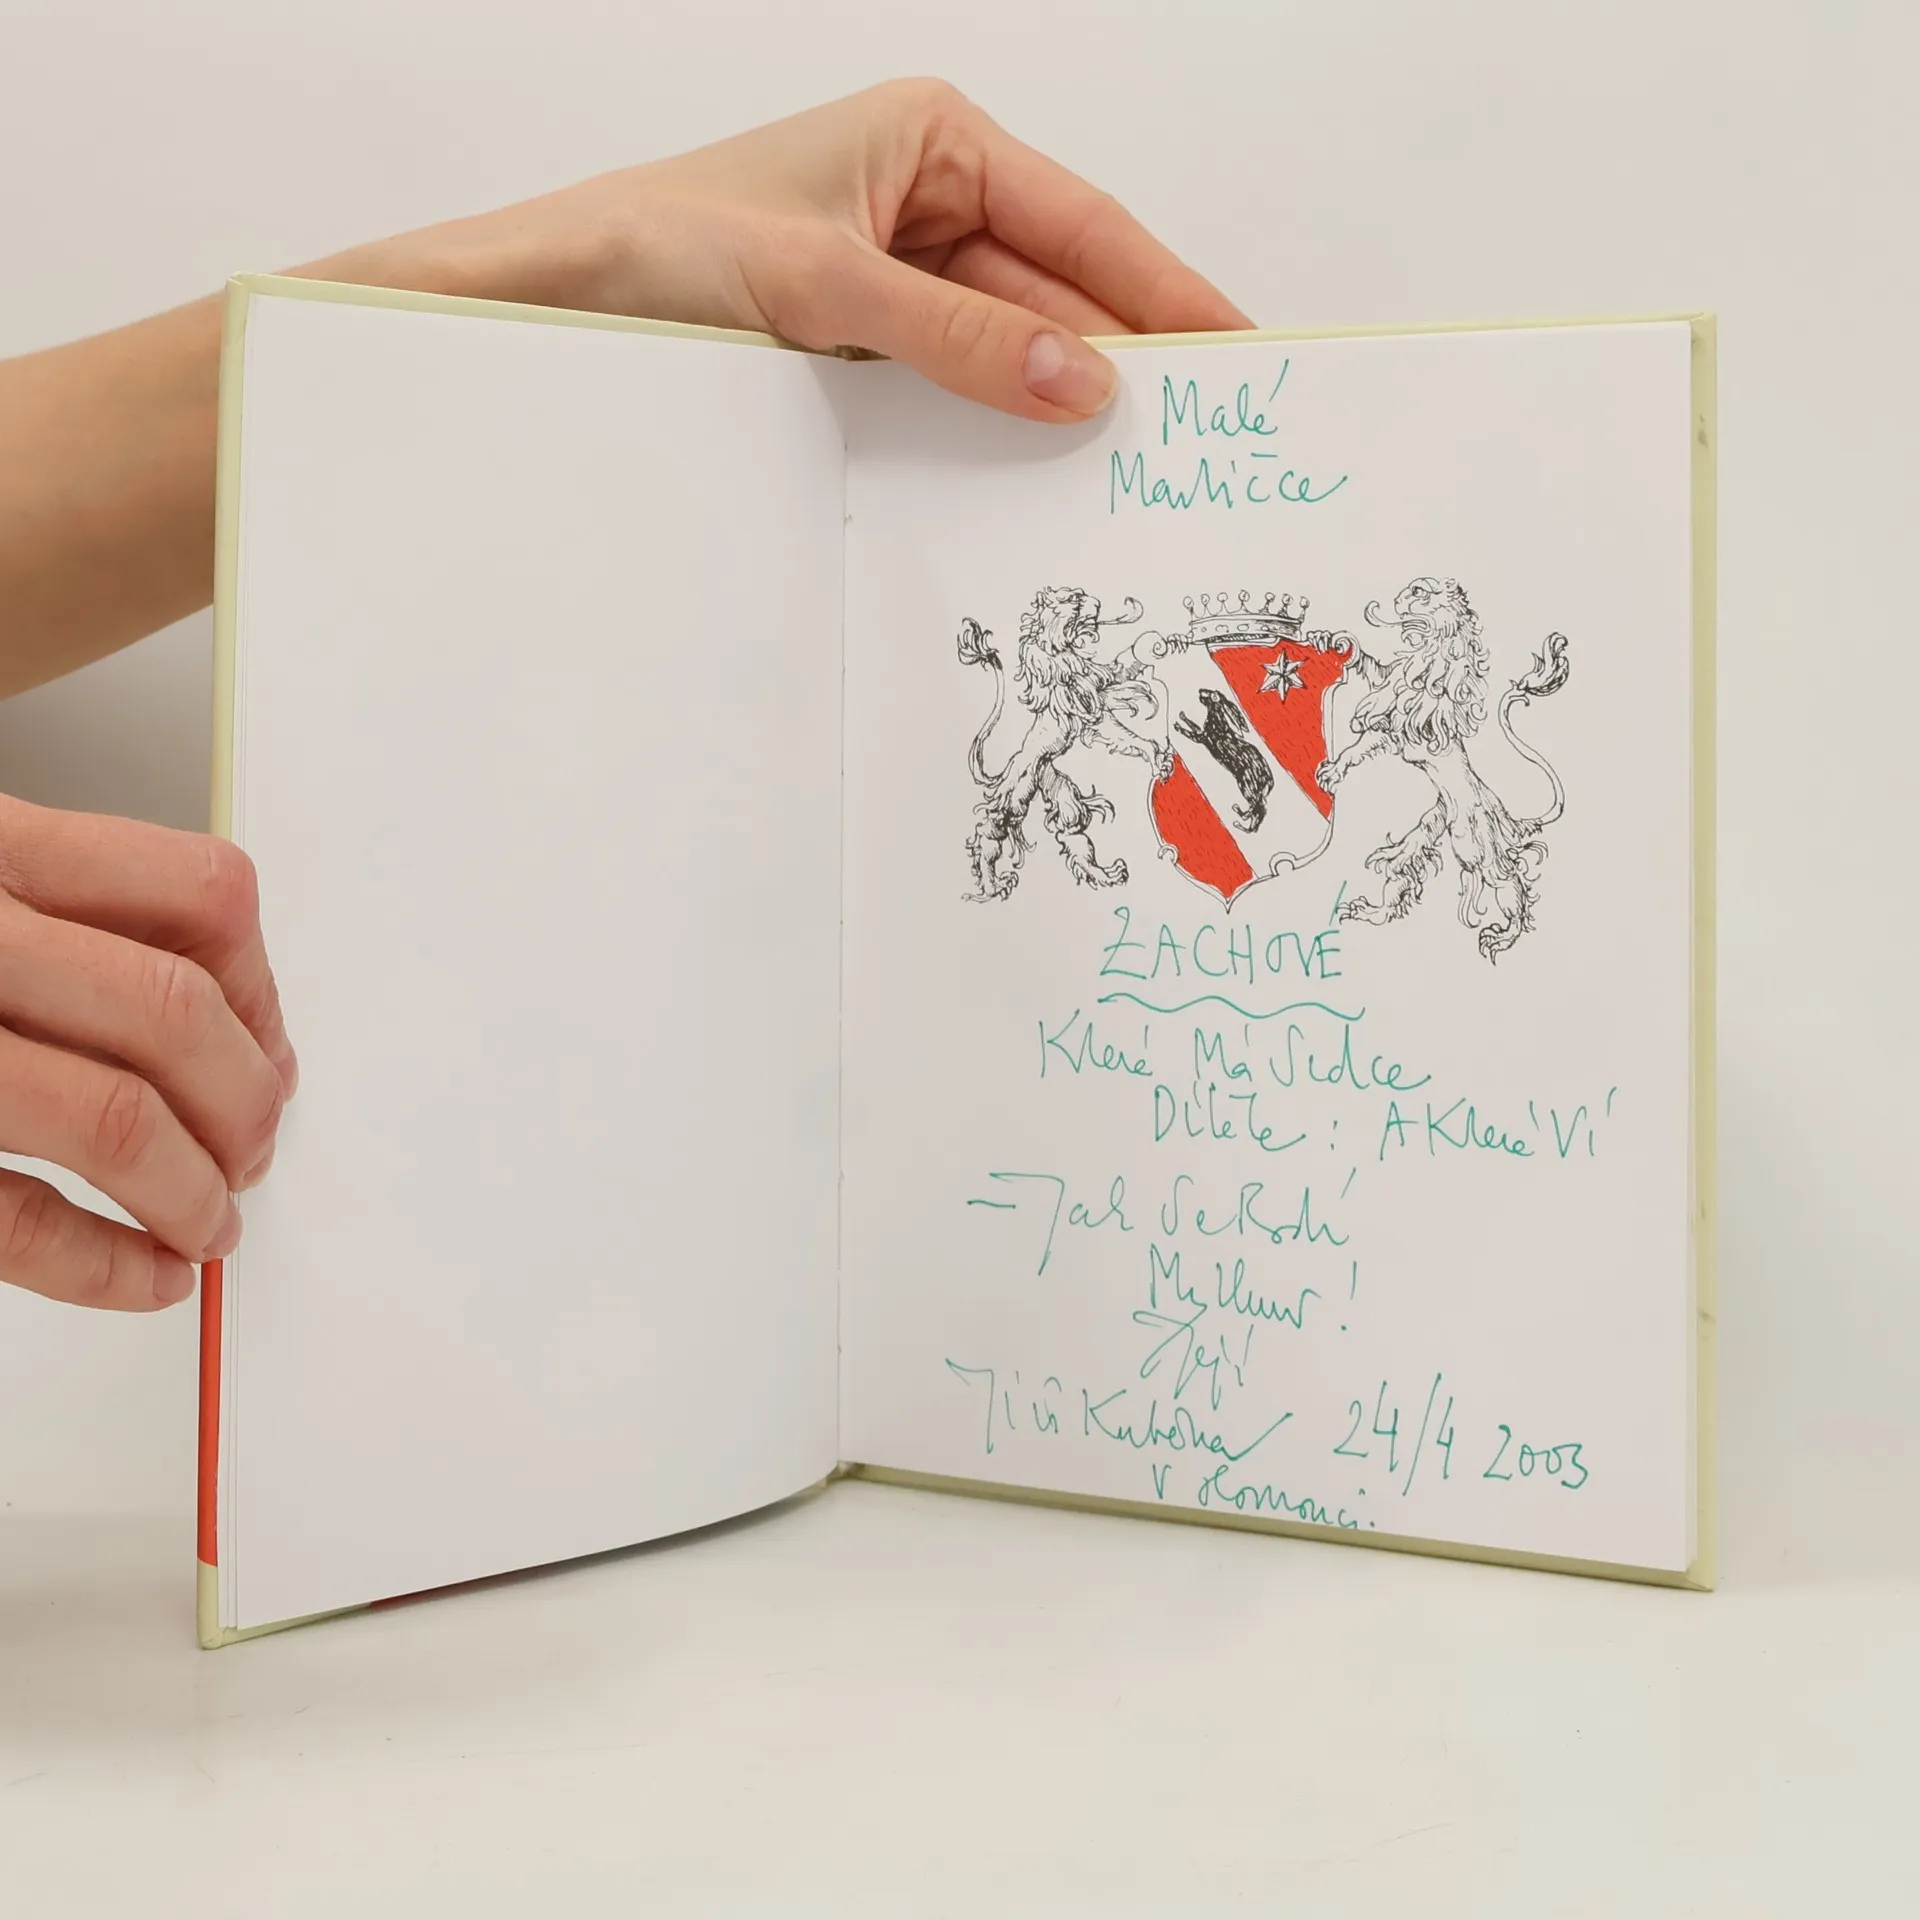 Malé
Martičce
ZACHOVÉ
Která Má Srdce
Dítěte : A Která Ví
– Jak Se Brání
Mlhám !
Její
Jiří Kuběna 24/4 2003
V Olomouci.